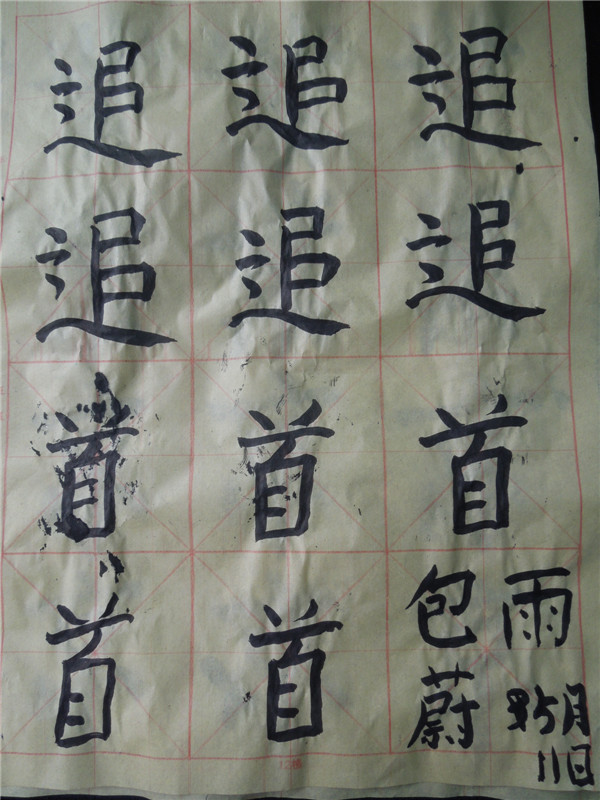 追追追
追追追
首首首
首首
包蔚
雨
5月
11日